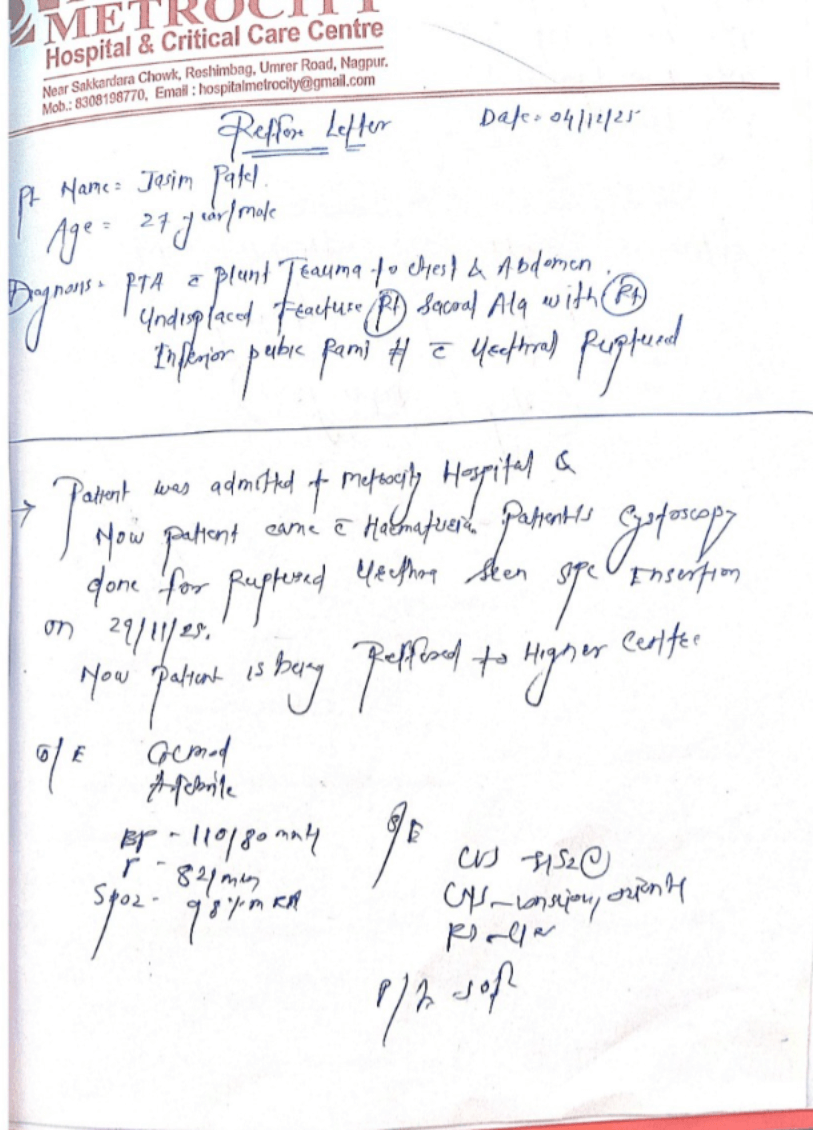 METROCITY
Hospital & Critical Care Centre
Near Sakkardara Chowk, Reshimbag, Umrer Road, Nagpur.
Mob.: 8308198770, Email : hospitalmetrocity@gmail.com
Reffere Letter Date = 04/12/25
Pt Name = Jasim Patel.
Age = 27 year/male
Diagnosis = RTA c̄ Blunt Trauma to chest & Abdomen.
Undisplaced Fracture Rt Sacral Ala with Rt
Inferior pubic Rami # c̄ Urethral Ruptured
→ Patient was admitted Metrocity Hospital &
Now patient came c̄ Haematuria. Patient is Cystoscopy
done for Ruptured Urethra seen SPC Insertion
on 29/11/25.
Now patient is being Reffered to Higher Centre
O/E GCmod
Afebrile
BP - 110/80 mmH S/E
P - 82/min CVS - S1S2
Spo2 - 98% on RA CNS - conscious, orient
RS - clear
P/A soft